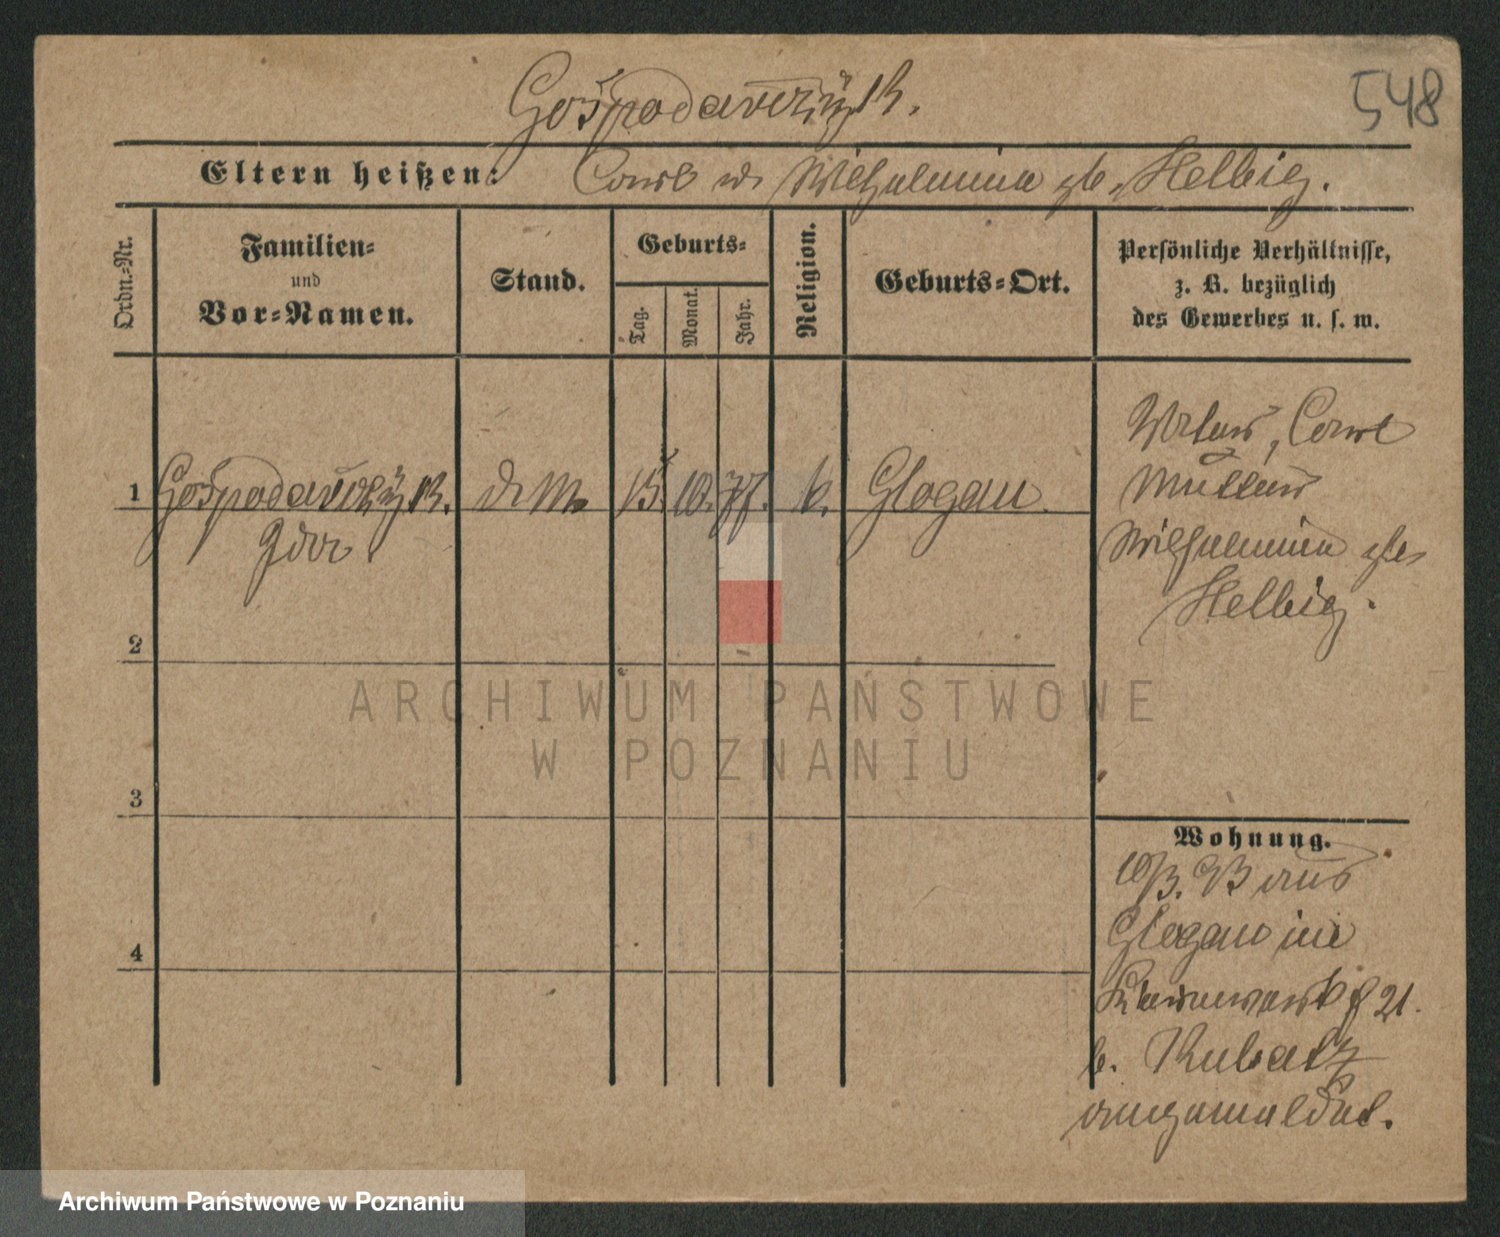 548
Gospodarczyk.
Eltern heißen: Carl u. Wilhelmine gb. Helbig.
Ordn.-Nr.
Familien-
und
Vor-Namen.
Stand.
Geburts-
Tag.
Monat.
Jahr.
Religion.
Geburts-Ort.
Persönliche Verhältnisse,
z. B. bezüglich
des Gewerbes u. s. w.
1 Gospodarczyk. 15. 10. 77. k. Glogau.
Ida
Vater, Carl
Mutter
Wilhelmine gb.
Helbig.
2
3
4
Wohnung.
10/3. 93 aus
Glogau in
21.
b. Kubatz
angemeldet.
ARCHIWUM PAŃSTWOWE
W POZNANIU
Archiwum Państwowe w Poznaniu